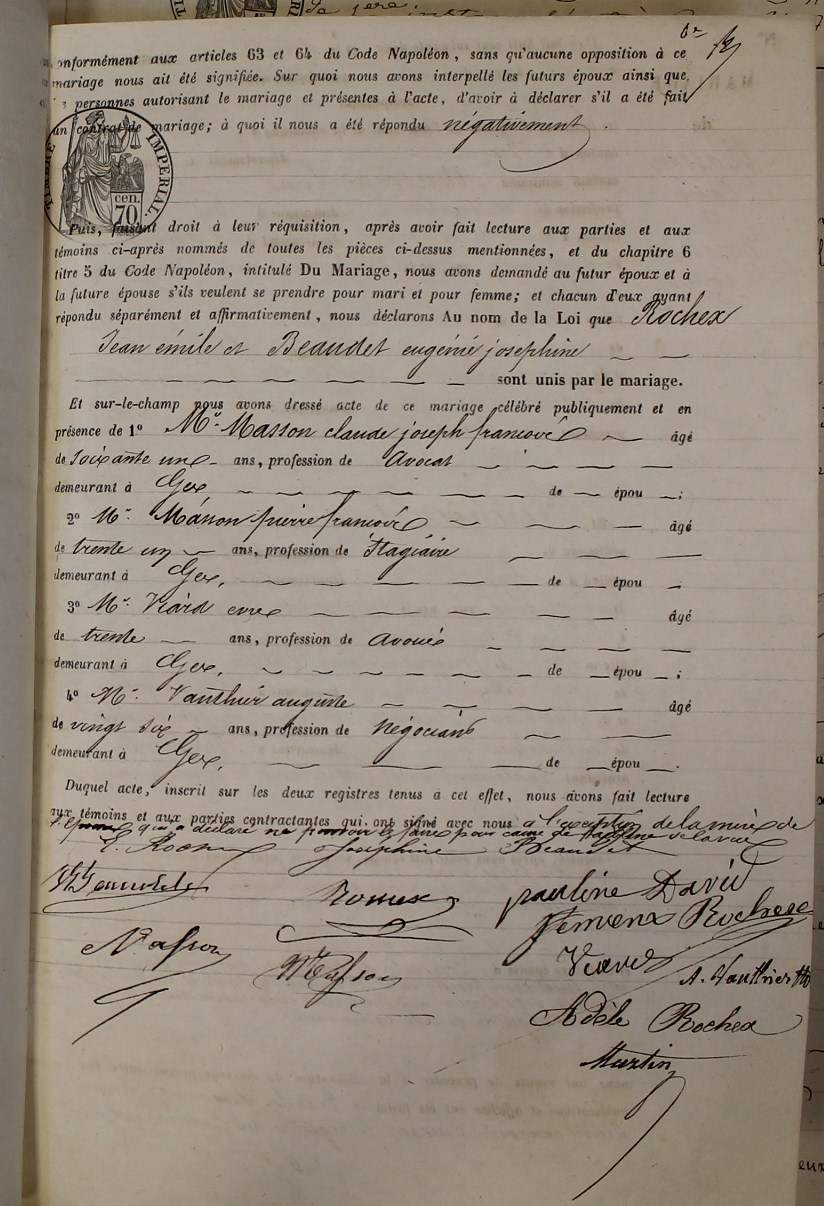 conformément aux articles 63 et 64 du Code Napoléon, sans qu'aucune opposition à ce
mariage nous ait été signifiée. Sur quoi nous avons interpellé les futurs époux ainsi que
personnes autorisant le mariage et présentes à l'acte, d'avoir à déclarer s'il a été fait
un contrat de mariage; à quoi il nous a été répondu négativement.
TIMBRE IMPERIAL
cen.
70
Puis, faisant droit à leur réquisition, après avoir fait lecture aux parties et aux
témoins ci-après nommés de toutes les pièces ci-dessus mentionnées, et du chapitre 6
titre 5 du Code Napoléon, intitulé Du Mariage, nous avons demandé au futur époux et à
la future épouse s'ils veulent se prendre pour mari et pour femme; et chacun d'eux ayant
répondu séparément et affirmativement, nous déclarons Au nom de la Loi que Rochex
Jean émile et Beaudet eugénie josephine
sont unis par le mariage.
Et sur-le-champ nous avons dressé acte de ce mariage célébré publiquement et en
présence de 1o Mr Masson claude joseph francois âgé
de soixante un ans, profession de Avocat
demeurant à Gex de épou ;
2o Mr Masson pierre francois âgé
de trente un ans, profession de Stagiaire
demeurant à Gex, de épou
3o Mr Viard âgé
de trente ans, profession de avoué
demeurant à Gex, de épou ;
4o Mr Vauthier auguste âgé
de vingt six ans, profession de négociant
demeurant à Gex, de épou .
Duquel acte, inscrit sur les deux registres tenus à cet effet, nous avons fait lecture
aux témoins et aux parties contractantes qui ont signé avec nous à l'exception de la mère de
qui a déclaré ne pouvoir le faire pour cause de
Josephine Beaudet
pauline David
Rochex
Masson
Viard
A. Vauthier
Adèle Rochex
Martin